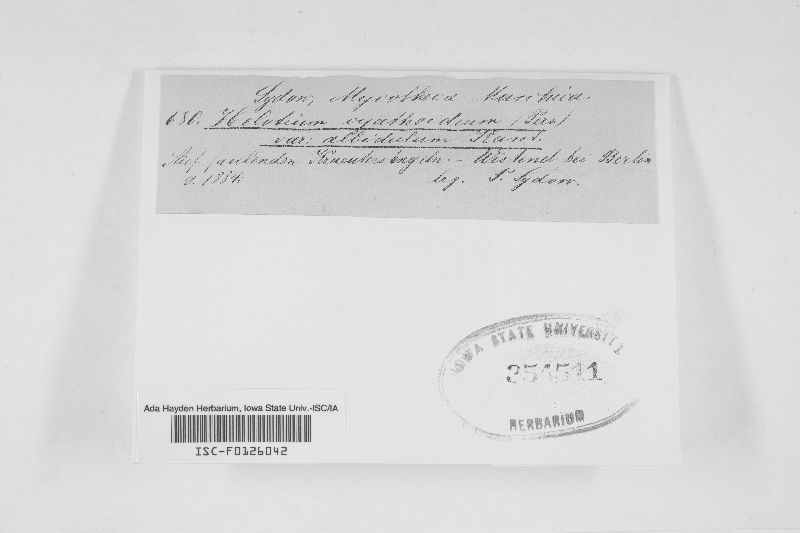 Sydow, Mycotheca Marchica.
680. Helotium cyathoideum (Pers)
var: albidulum
Auf faulenden Kräuterstengeln. - Westend bei Berlin
9. 1884. leg. P. Sydow.
IOWA STATE UNIVERSITY
354511
HERBARIUM
Ada Hayden Herbarium, Iowa State Univ.-ISC/IA
ISC-F0126042